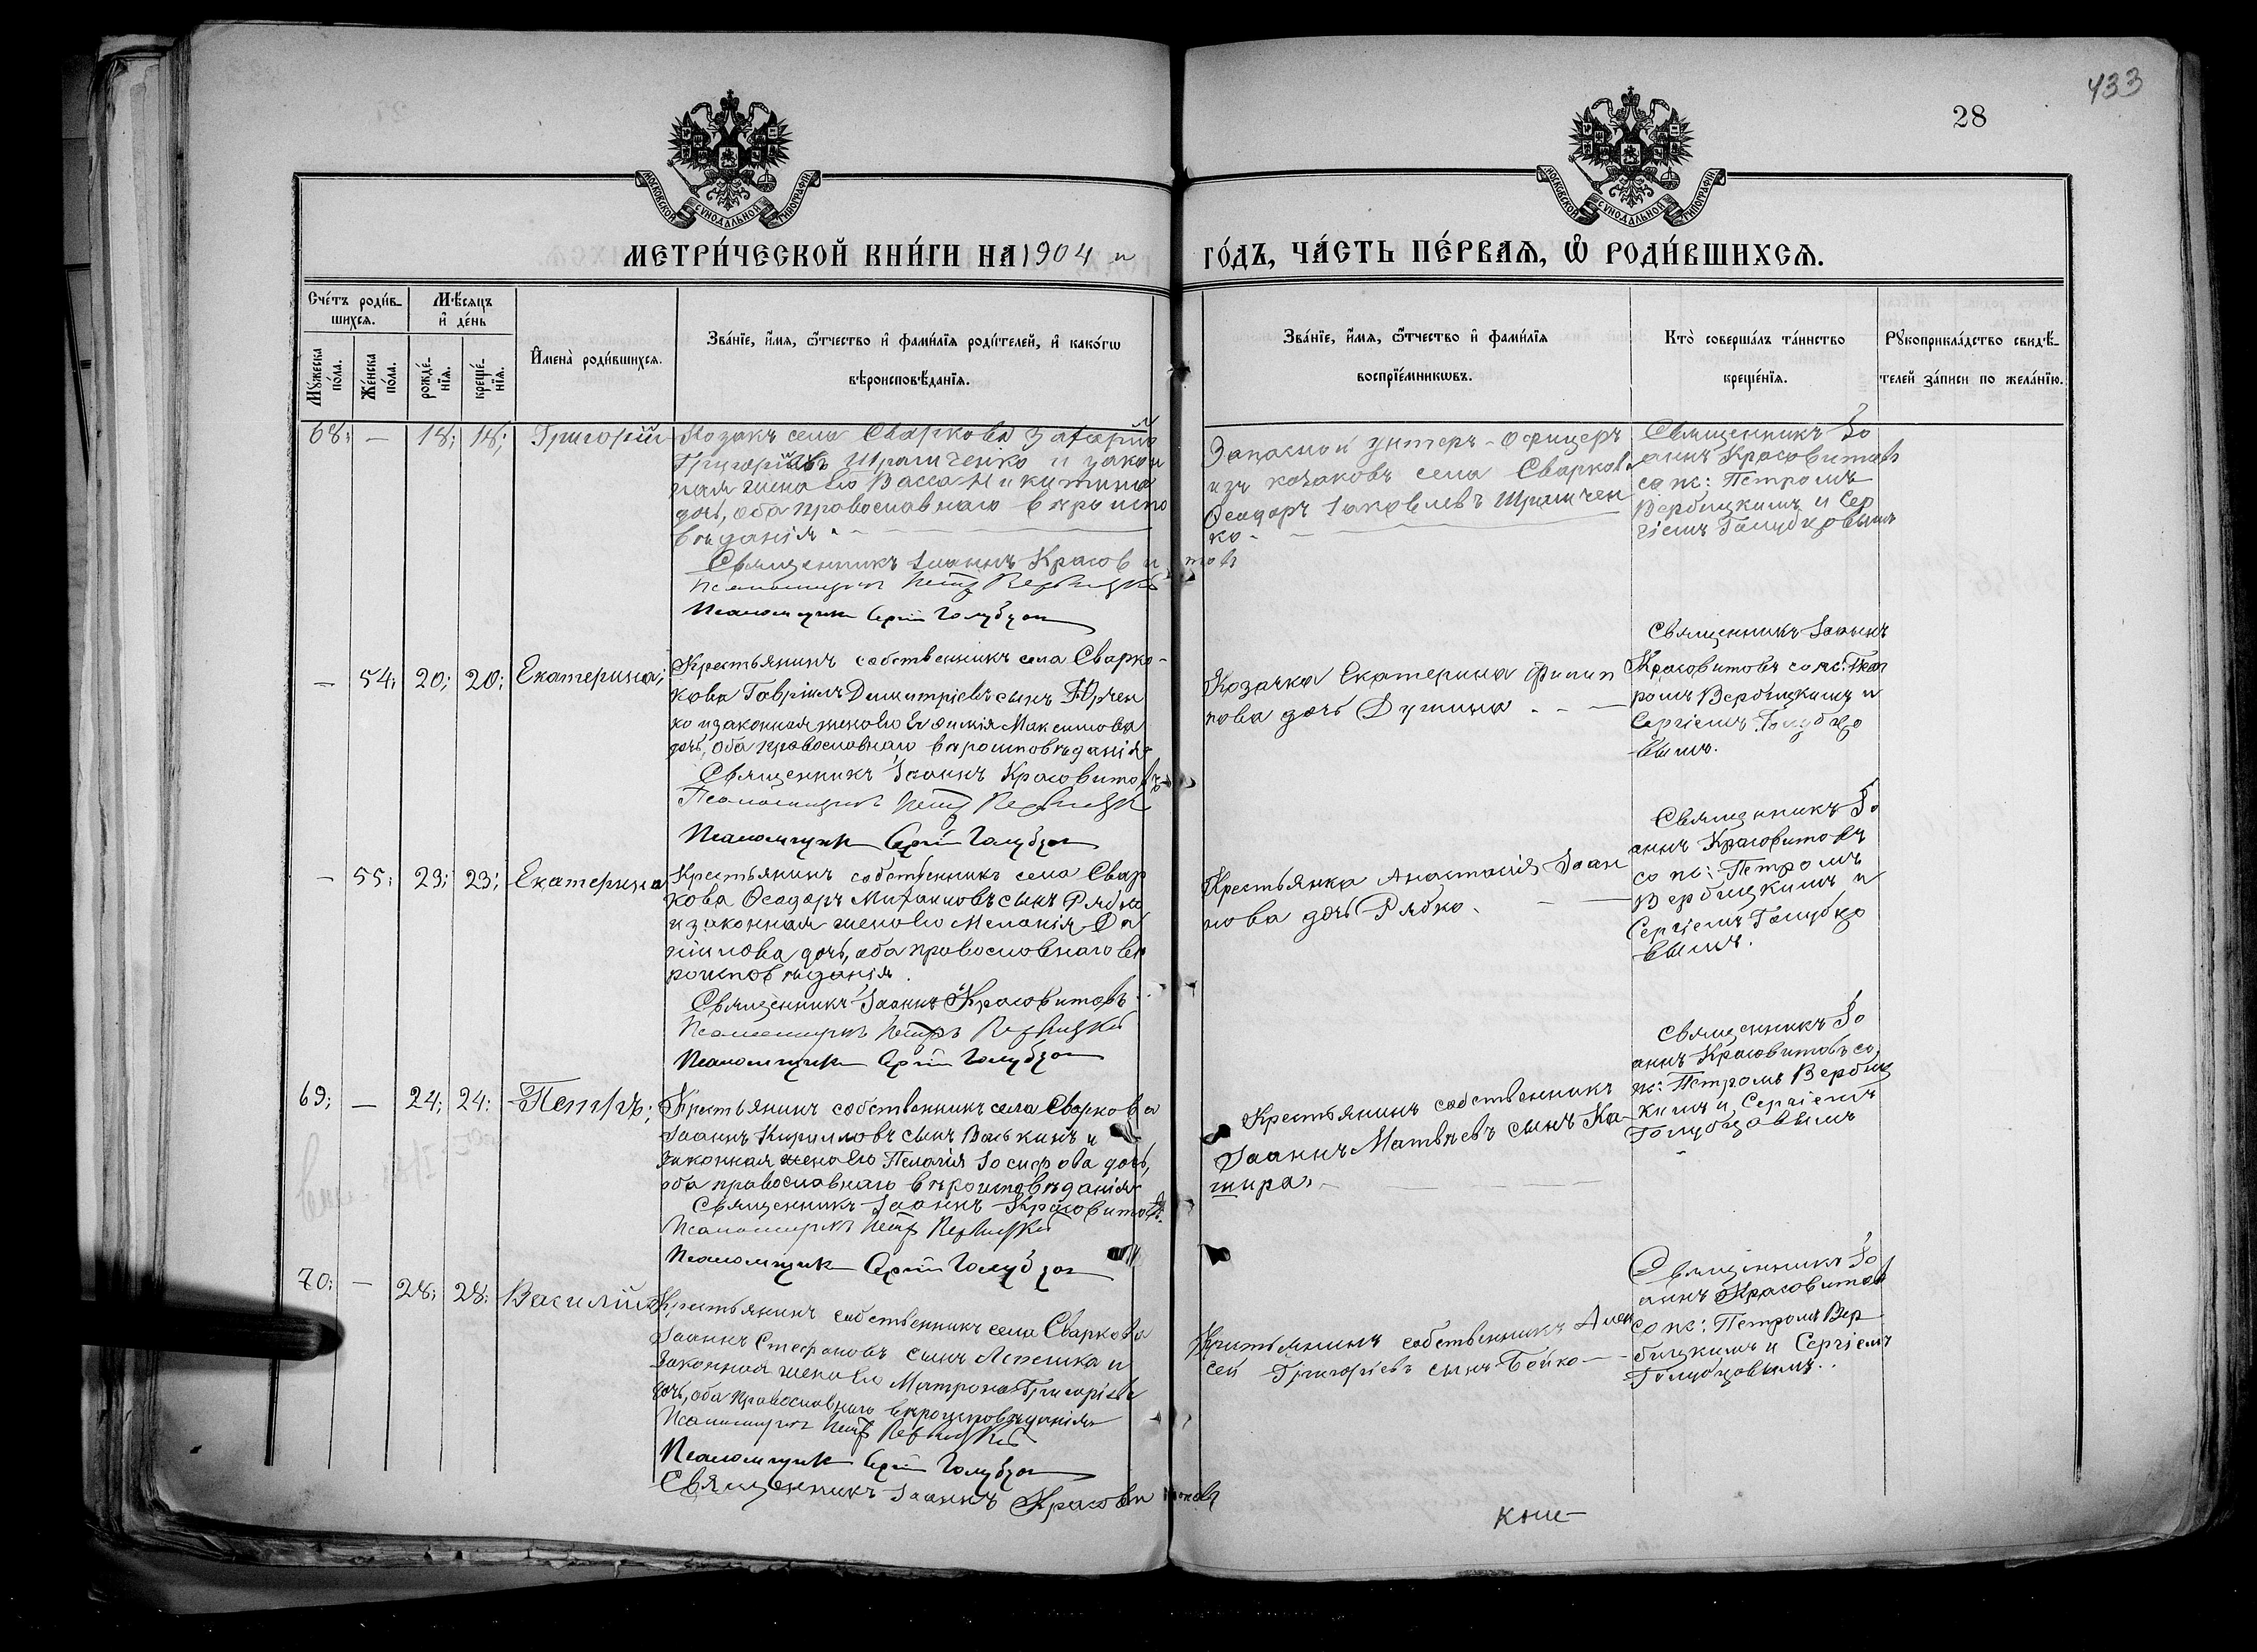 433
28
МОСКОВСКОЙ СѴНОДАЛЬНОЙ ТИПОГРАФІИ
МОСКОВСКОЙ СѴНОДАЛЬНОЙ ТИПОГРАФІИ
МЕТРИ́ЧЕСКОЙ КНИ́ГИ НА 1904 й
ГО́ДЪ, ЧА́СТЬ ПЕ́РВАѦ, Ѡ҆ РОДИ́ВШИХСѦ.
Сче́тъ роди́в-
шихсѧ.
Мѣ́сѧцъ
и҆ де́нь
Мꙋ́жеска по́ла.
Же́нска по́ла.
рожде́-
нїѧ.
креще́-
нїѧ.
И҆мена̀ роди́вшихсѧ.
Зва́нїе, и҆́мѧ, ѻ҆́тчество и҆ фами́лїѧ роди́телей, и҆ како́гѡ
вѣроисповѣ́данїѧ.
Зва́нїе, и҆́мѧ, ѻ҆́тчество и҆ фами́лїѧ
воспрїе́мникѡвъ.
Кто̀ соверша́лъ та́инство
креще́нїѧ.
Рꙋкоприкла́дство свидѣ́-
телей за́писи по жела́нїю.
68; — 18; 18; Григорій
Козакъ села Сваркова Захарій
Григоріевъ Шрамченко и закон
ная жена его Васса Никитина
дочь, оба православнаго вѣроиспо
вѣданія.
Священникъ Іоаннъ Красовитовъ
Псаломщикъ Петръ Вербицкій
Псаломщикъ Сергій Голубцов
Запасной унтеръ-офицеръ
изъ козаковъ села Сваркова
Ѳеодоръ Іаковлевъ Шрамчен
ко.
Священникъ Іо
аннъ Красовитовъ
со пс: Петромъ
Вербицкимъ и Сер
гіемъ Голубцовымъ
— 54; 20; 20; Екатерина;
Крестьянинъ собственникъ села Сварко-
кова Гавріилъ Димитріевъ сынъ Юрчен
ко и законная жена его Евфимія Максимова
дочь, оба православнаго вѣроисповѣданія
Священникъ Іоаннъ Красовитовъ
Псаломщикъ Петръ Вербицкій
Псаломщикъ Сергій Голубцов
Козачка Екатерина Филип
пова дочь
Священникъ Іоаннъ
Красовитовъ со пс: Пет
ромъ Вербицкимъ и
Сергіемъ Голубцо
вымъ.
— 55; 23; 23; Екатерина
Крестьянинъ собственникъ села Свар
кова Ѳеодоръ Михаиловъ сынъ Рябко
и законная жена его Меланія Да
ніилова дочь, оба православнаго вѣ
роисповѣданія.
Священникъ Іоаннъ Красовитовъ
Псаломщикъ Петръ Вербицкій
Псаломщикъ Сергій Голубцов
Крестьянка Анастасія Іоан
нова дочь Рябко.
Священникъ Іо
аннъ Красовитовъ
со пс: Петромъ
Вербицкимъ и
Сергіемъ Голубцо
вымъ.
69; — 24; 24: Петръ;
Крестьянинъ собственникъ села Сваркова
Іоаннъ Кирилловъ сынъ Васькинъ и
законная жена его Пелагія Іосифова дочь,
оба православнаго вѣроисповѣданія
Священникъ Іоаннъ Красовитовъ
Псаломщикъ Петръ Вербицкій
Псаломщикъ Сергій Голубцов
Крестьянинъ собственникъ
Іоаннъ Матвѣевъ сынъ Ка-
шира.
Священникъ Іо
аннъ Красовитовъ со
пс: Петромъ Вербиц
кимъ и Сергіемъ
Голубцовымъ
70; — 28; 28: Василій
Крестьянинъ собственникъ села Сваркова
Іоаннъ Стефановъ сынъ Лепешка и
законная жена его Матрона Григоріева
дочь, оба православнаго вѣроисповѣданія
Псаломщикъ Петръ Вербицкій
Псаломщикъ Сергій Голубцов
Священникъ Іоаннъ Красовитовъ
Крестьянинъ собственникъ Алек
сей Григоріевъ сынъ Бойко
Священникъ Іо
аннъ Красовитовъ
со пс: Петромъ Вер
бицкимъ и Сергіемъ
Голубцовымъ.